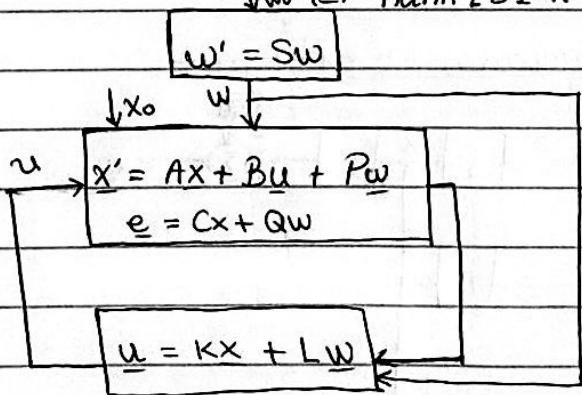 w' = Sw
↓x₀ w
u
x' = Ax + Bu + Pw
e = Cx + Qw
u = Kx + Lw